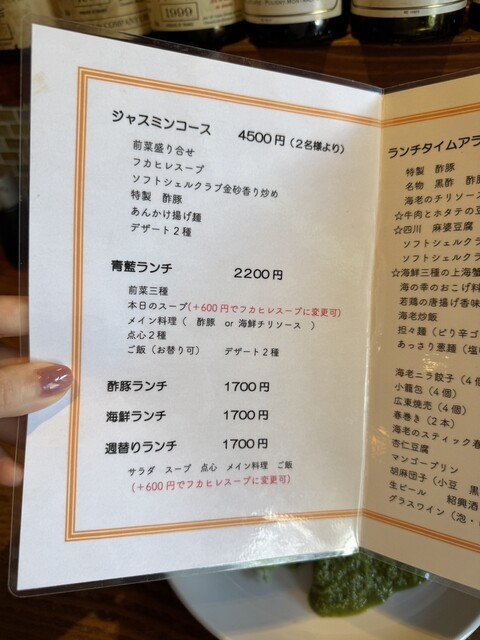 1999
ジャスミンコース 4500円(2名様より)
前菜盛り合せ
フカヒレスープ
ソフトシェルクラブ金砂香り炒め
特製 酢豚
あんかけ揚げ麺
デザート2種
青藍ランチ 2200円
前菜三種
本日のスープ(+600円でフカヒレスープに変更可)
メイン料理( 酢豚 or 海鮮チリソース )
点心2種
ご飯(お替り可) デザート2種
酢豚ランチ 1700円
海鮮ランチ 1700円
週替りランチ 1700円
サラダ スープ 点心 メイン料理 ご飯
(+600円でフカヒレスープに変更可)
ランチタイムアラ
特製 酢豚
名物 黒酢 酢豚
海老のチリソース
☆牛肉とホタテの豆
☆四川 麻婆豆腐
ソフトシェルクラ
ソフトシェルクラ
☆海鮮三種の上海蟹
海の幸のおこげ料
若鶏の唐揚げ香味
海老炒飯
担々麺(ピリ辛ゴ
あっさり葱麺(塩
海老ニラ餃子(4個
小籠包(4個)
広東焼売(4個)
春巻き(2本)
海老のスティック春
杏仁豆腐
マンゴープリン
胡麻団子(小豆 黒
生ビール 紹興酒
グラスワイン(泡・